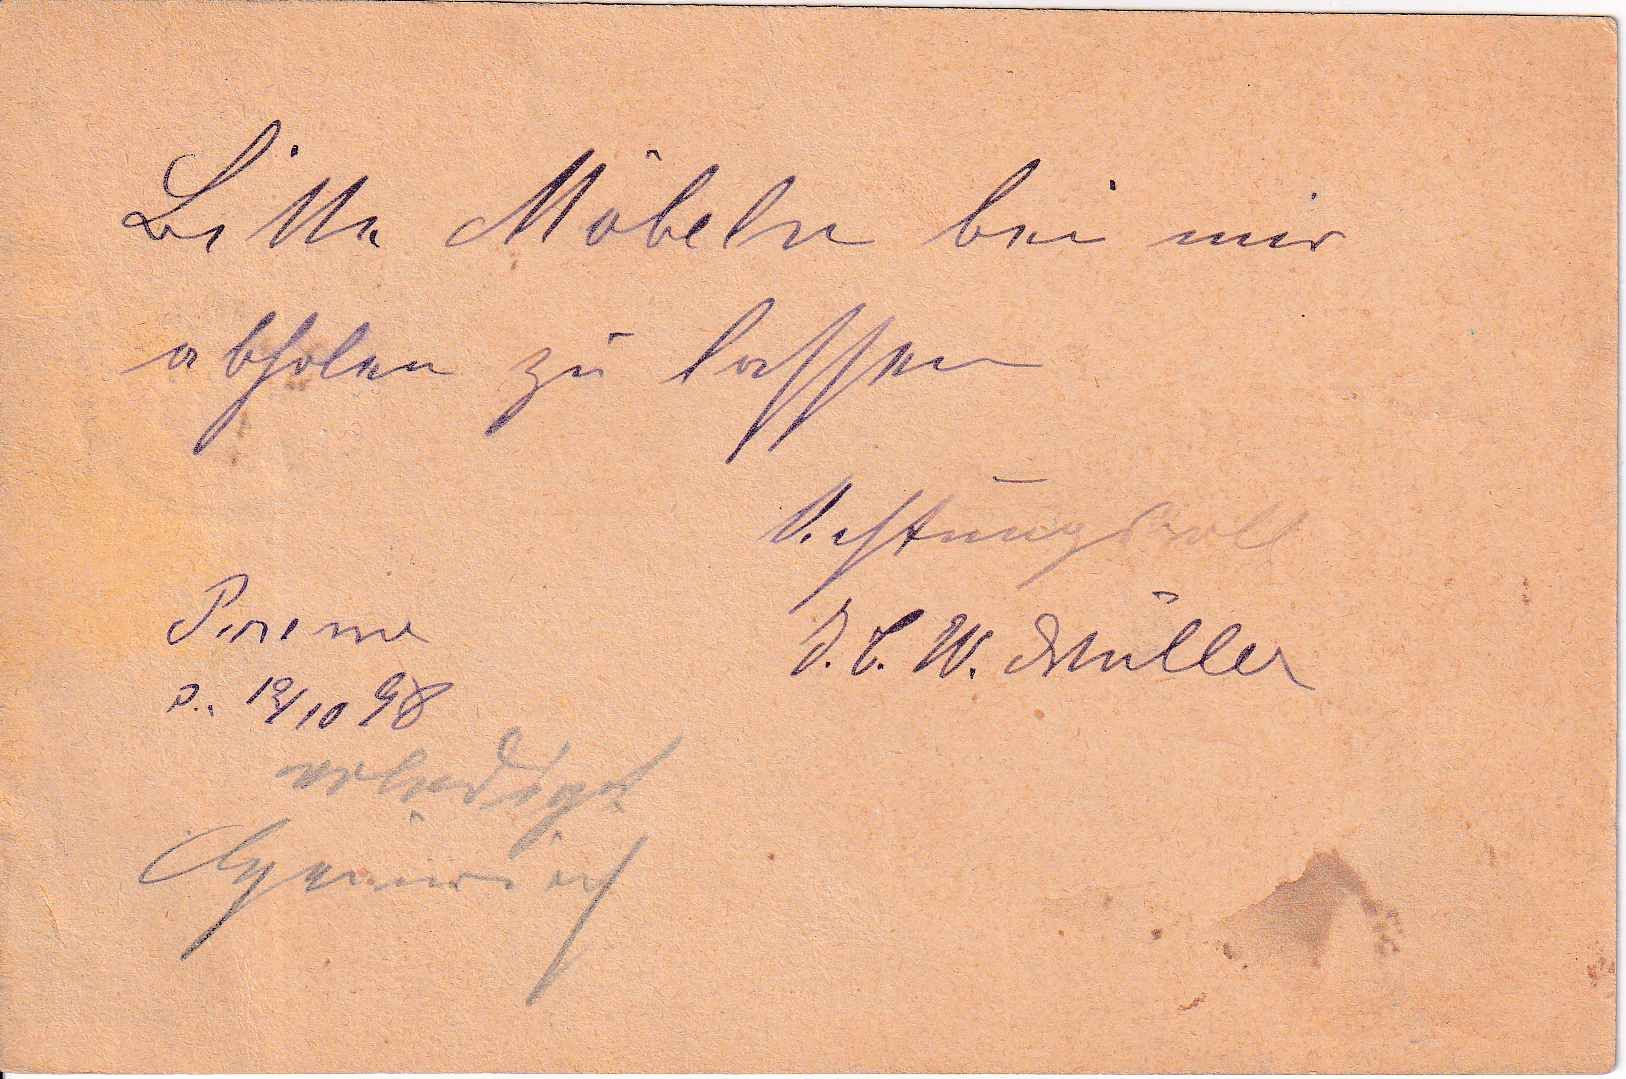 Bitte Möbeln bei mir
abholen zu lassen
Achtungsvoll
J. C. W. Müller
d. 19/10 98
erledigt